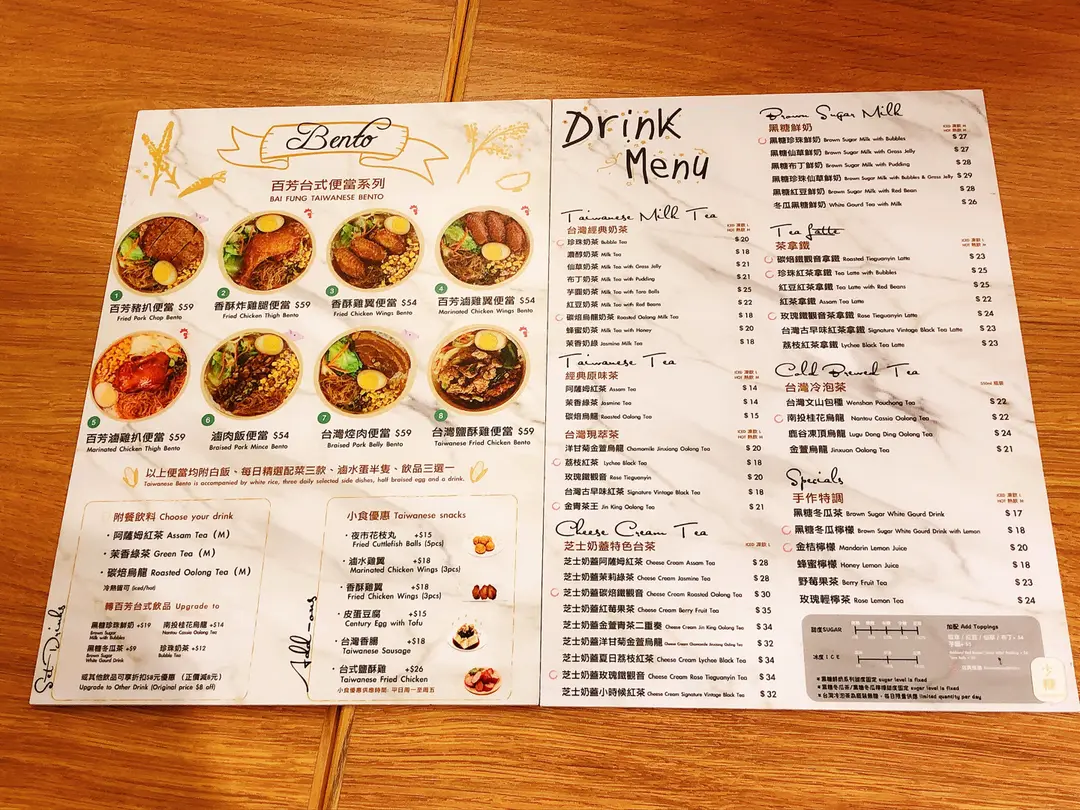 Bento
百芳台式便當系列
BAI FUNG TAIWANESE BENTO
1
百芳豬扒便當 $59
Fried Pork Chop Bento
2
香酥炸雞腿便當 $59
Fried Chicken Thigh Bento
3
香酥雞翼便當 $54
Fried Chicken Wings Bento
4
百芳滷雞翼便當 $54
Marinated Chicken Wings Bento
5
百芳滷雞扒便當 $59
Marinated Chicken Thigh Bento
6
滷肉飯便當 $54
Braised Pork Mince Bento
7
台灣焢肉便當 $59
Braised Pork Belly Bento
8
台灣鹽酥雞便當 $59
Taiwanese Fried Chicken Bento
以上便當均附白飯、每日精選配菜三款、滷水蛋半隻、飲品三選一
Taiwanese Bento is accompanied by white rice, three daily selected side dishes, half braised egg and a drink.
Set Drinks
附餐飲料 Choose your drink
・阿薩姆紅茶 Assam Tea (M)
・茉香綠茶 Green Tea (M)
・碳焙烏龍 Roasted Oolong Tea (M)
冷熱皆可 (iced/hot)
轉百芳台式飲品 Upgrade to
黑糖珍珠鮮奶 +$19
Brown Sugar
Milk with Bubbles
南投桂花烏龍 +$14
Nantou Cassia Oolong Tea
黑糖冬瓜茶 +$9
Brown Sugar
White Gourd Drink
珍珠奶茶 +$12
Bubble Tea
或其他飲品可享折扣$8元優惠 (正價減8元)
Upgrade to Other Drink (Original price $8 off)
Add-ons
小食優惠 Taiwanese snacks
・夜市花枝丸 +$15
Fried Cuttlefish Balls (5pcs)
・滷水雞翼 +$18
Marinated Chicken Wings (3pcs)
・香酥雞翼 +$18
Fried Chicken Wings (3pcs)
・皮蛋豆腐 +$15
Century Egg with Tofu
・台灣香腸 +$18
Taiwanese Sausage
・台式鹽酥雞 +$26
Taiwanese Fried Chicken
小食優惠供應時間: 平日周一至周五
Drink
Menu
Taiwanese Milk Tea
台灣經典奶茶
ICED 凍飲 L
HOT 熱飲 M
珍珠奶茶 Bubble Tea $20
濃醇奶茶 Milk Tea $18
仙草奶茶 Milk Tea with Grass Jelly $21
布丁奶茶 Milk Tea with Pudding $21
芋圓奶茶 Milk Tea with Taro Balls $25
紅豆奶茶 Milk Tea with Red Beans $22
碳焙烏龍奶茶 Roasted Oolong Milk Tea $18
蜂蜜奶茶 Milk Tea with Honey $20
茉香奶綠 Jasmine Milk Tea $18
Taiwanese Tea
經典原味茶
ICED 凍飲 L
HOT 熱飲 M
阿薩姆紅茶 Assam Tea $14
茉香綠茶 Jasmine Tea $14
碳焙烏龍 Roasted Oolong Tea $15
台灣現萃茶
ICED 凍飲 L
HOT 熱飲 M
洋甘菊金萱烏龍 Chamomile Jinxiang Oolong Tea $20
荔枝紅茶 Lychee Black Tea $18
玫瑰鐵觀音 Rose Tieguanyin $20
台灣古早味紅茶 Signature Vintage Black Tea $18
金青茶王 Jin King Oolong Tea $21
Cheese Cream Tea
芝士奶蓋特色台茶
ICED 凍飲 L
芝士奶蓋阿薩姆紅茶 Cheese Cream Assam Tea $28
芝士奶蓋茉莉綠茶 Cheese Cream Jasmine Tea $28
芝士奶蓋碳焙鐵觀音 Cheese Cream Roasted Oolong Tea $30
芝士奶蓋紅莓果茶 Cheese Cream Berry Fruit Tea $35
芝士奶蓋金萱青茶二重奏 Cheese Cream Jin King Oolong Tea $34
芝士奶蓋洋甘菊金萱烏龍 Cheese Cream Chamomile Jinxiang Oolong Tea $32
芝士奶蓋夏日荔枝紅茶 Cheese Cream Lychee Black Tea $34
芝士奶蓋玫瑰鐵觀音 Cheese Cream Rose Tieguanyin Tea $34
芝士奶蓋小時候紅茶 Cheese Cream Signature Vintage Black Tea $32
Brown Sugar Milk
黑糖鮮奶
ICED 凍飲 M
HOT 熱飲 M
黑糖珍珠鮮奶 Brown Sugar Milk with Bubbles $27
黑糖仙草鮮奶 Brown Sugar Milk with Grass Jelly $27
黑糖布丁鮮奶 Brown Sugar Milk with Pudding $28
黑糖珍珠仙草鮮奶 Brown Sugar Milk with Bubbles & Grass Jelly $29
黑糖紅豆鮮奶 Brown Sugar Milk with Red Bean $28
冬瓜黑糖鮮奶 White Gourd Tea with Milk $26
Tea Latte
茶拿鐵
ICED 凍飲 L
HOT 熱飲 M
碳焙鐵觀音拿鐵 Roasted Tieguanyin Latte $23
珍珠紅茶拿鐵 Tea Latte with Bubbles $25
紅豆紅茶拿鐵 Tea Latte with Red Beans $25
紅茶拿鐵 Assam Tea Latte $22
玫瑰鐵觀音茶拿鐵 Rose Tieguanyin Latte $24
台灣古早味紅茶拿鐵 Signature Vintage Black Tea Latte $23
荔枝紅茶拿鐵 Lychee Black Tea Latte $23
Cold Brewed Tea
台灣冷泡茶
台灣文山包種 Wenshan Pouchong Tea $22
南投桂花烏龍 Nantou Cassia Oolong Tea $22
鹿谷凍頂烏龍 Lugu Dong Ding Oolong Tea $24
金萱烏龍 Jinxuan Oolong Tea $21
Specials
手作特調
ICED 凍飲 L
HOT 熱飲 M
黑糖冬瓜茶 Brown Sugar White Gourd Drink $17
黑糖冬瓜檸檬 Brown Sugar White Gourd Drink with Lemon $18
金桔檸檬 Mandarin Lemon Juice $20
蜂蜜檸檬 Honey Lemon Juice $18
野莓果茶 Berry Fruit Tea $23
玫瑰輕檸茶 Rose Lemon Tea $24
甜度SUGAR
冰度ICE
加配 Add Toppings
■黑糖鮮奶系列甜度固定 sugar level is fixed
■黑糖冬瓜茶/黑糖冬瓜檸檬甜度固定 sugar level is fixed
■台灣冷泡茶為瓶裝無糖，每日限量供應 limited quantity per day